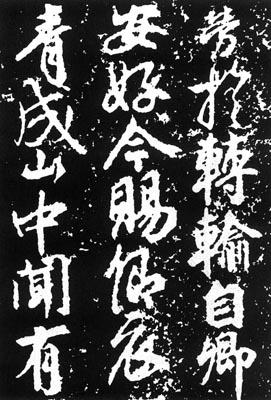 勞於轉輸自卿
安好今賜卿衣
青城山中聞有